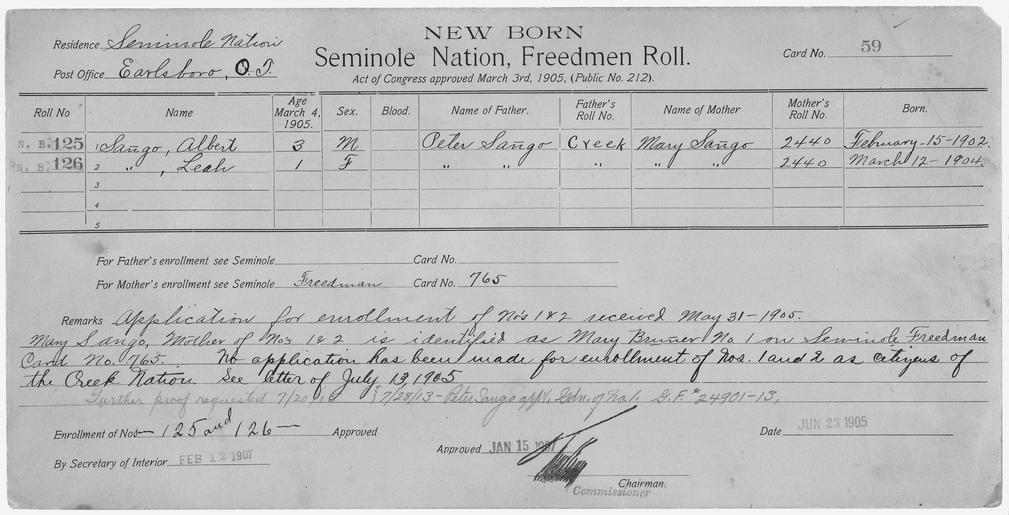 NEW BORN
Seminole Nation, Freedmen Roll.
Act of Congress approved March 3rd, 1905, (Public No. 212).
Residence Seminole Nation
Post Office Earlsboro, O.T.
Card No. 59
Roll No Name Age March 4, 1905. Sex. Blood. Name of Father. Father's Roll No. Name of Mother Mother's Roll No. Born.
N. B. 125 1 Sango, Albert 3 M Peter Sango Creek Mary Sango 2440 February-15-1902.
N. B. 126 2 " , Leah 1 F " " " " " 2440 March 12-1904.
3
4
5
For Father's enrollment see Seminole Card No.
For Mother's enrollment see Seminole Freedman Card No. 765
Remarks Application for enrollment of Nos 1&2 received May 31-1905.
Mary Sango, Mother of Nos 1&2 is identified as Mary Bruner No. 1 on Seminole Freedman
Card No. 765. No application has been made for enrollment of Nos. 1 and 2 as citizens of
the Creek Nation. See letter of July 13, 1905
Further proof requested 7/20/ 7/28/13-Peter Sango appt. Gdn. of No. 1. G.F. # 24901-13,
Enrollment of Nos- 125 and 126- Approved
By Secretary of Interior FEB 12 1907
Approved JAN 15 1907
Chairman.
Commissioner
Date JUN 23 1905